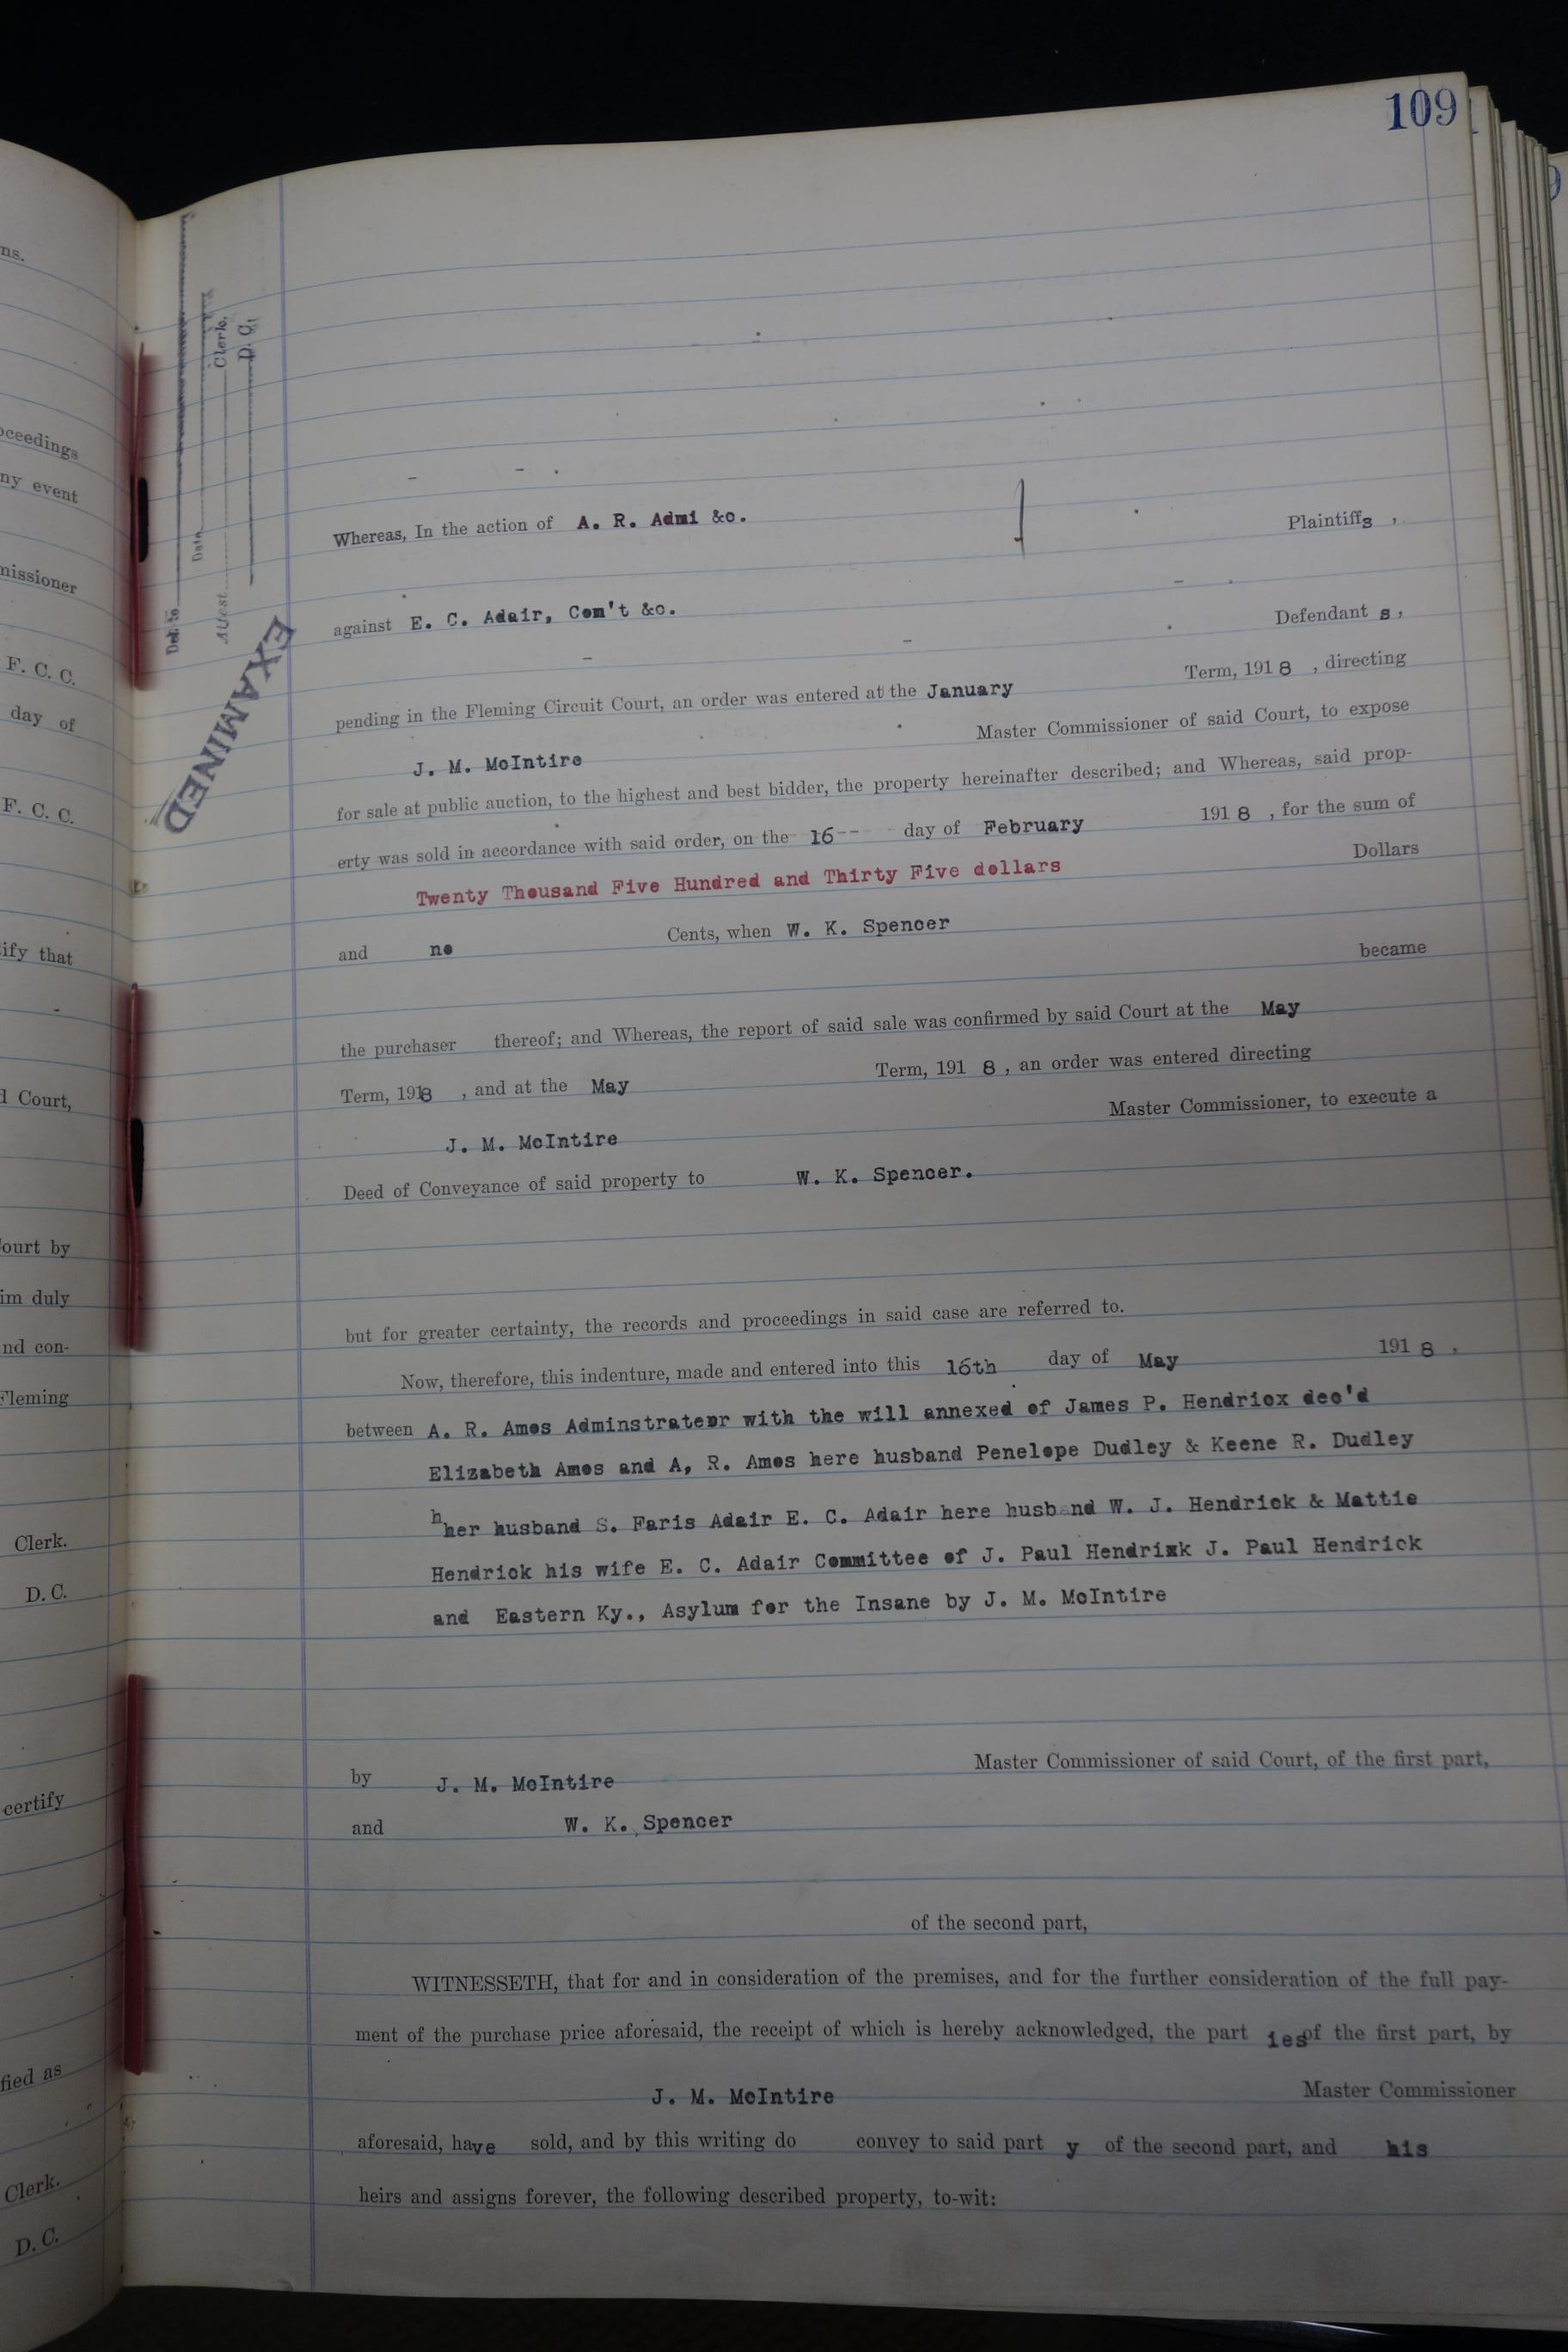 109
ns.
oceedings
ny event
missioner
F. C. C.
day of
F. C. C.
ify that
d Court,
ourt by
im duly
nd con-
Fleming
Clerk.
D. C.
certify
fied as
Clerk.
D. C.
Del. to
Date
Attest Clerk.
D. C.
EXAMINED
Whereas, In the action of A. R. Admi &c. Plaintiffs ,
against E. C. Adair, Com't &c. Defendant s,
pending in the Fleming Circuit Court, an order was entered at the January Term, 191 8 , directing
J. M. McIntire Master Commissioner of said Court, to expose
for sale at public auction, to the highest and best bidder, the property hereinafter described; and Whereas, said prop-
erty was sold in accordance with said order, on the 16-- day of February 191 8 , for the sum of
Twenty Thousand Five Hundred and Thirty Five dollars Dollars
and no Cents, when W. K. Spencer became
the purchaser thereof; and Whereas, the report of said sale was confirmed by said Court at the May
Term, 1918 , and at the May Term, 191 8 , an order was entered directing
J. M. McIntire Master Commissioner, to execute a
Deed of Conveyance of said property to W. K. Spencer.
but for greater certainty, the records and proceedings in said case are referred to.
Now, therefore, this indenture, made and entered into this 16th day of May 191 8 .
between A. R. Amos Adminstrateor with the will annexed of James P. Hendricx dec'd
Elizabeth Amos and A, R. Amos here husband Penelope Dudley & Keene R. Dudley
hher husband S. Faris Adair E. C. Adair here husband W. J. Hendrick & Mattie
Hendrick his wife E. C. Adair Committee of J. Paul Hendrixk J. Paul Hendrick
and Eastern Ky., Asylum for the Insane by J. M. McIntire
by J. M. McIntire Master Commissioner of said Court, of the first part,
and W. K. Spencer
of the second part,
WITNESSETH, that for and in consideration of the premises, and for the further consideration of the full pay-
ment of the purchase price aforesaid, the receipt of which is hereby acknowledged, the part ies of the first part, by
J. M. McIntire Master Commissioner
aforesaid, have sold, and by this writing do convey to said part y of the second part, and his
heirs and assigns forever, the following described property, to-wit: